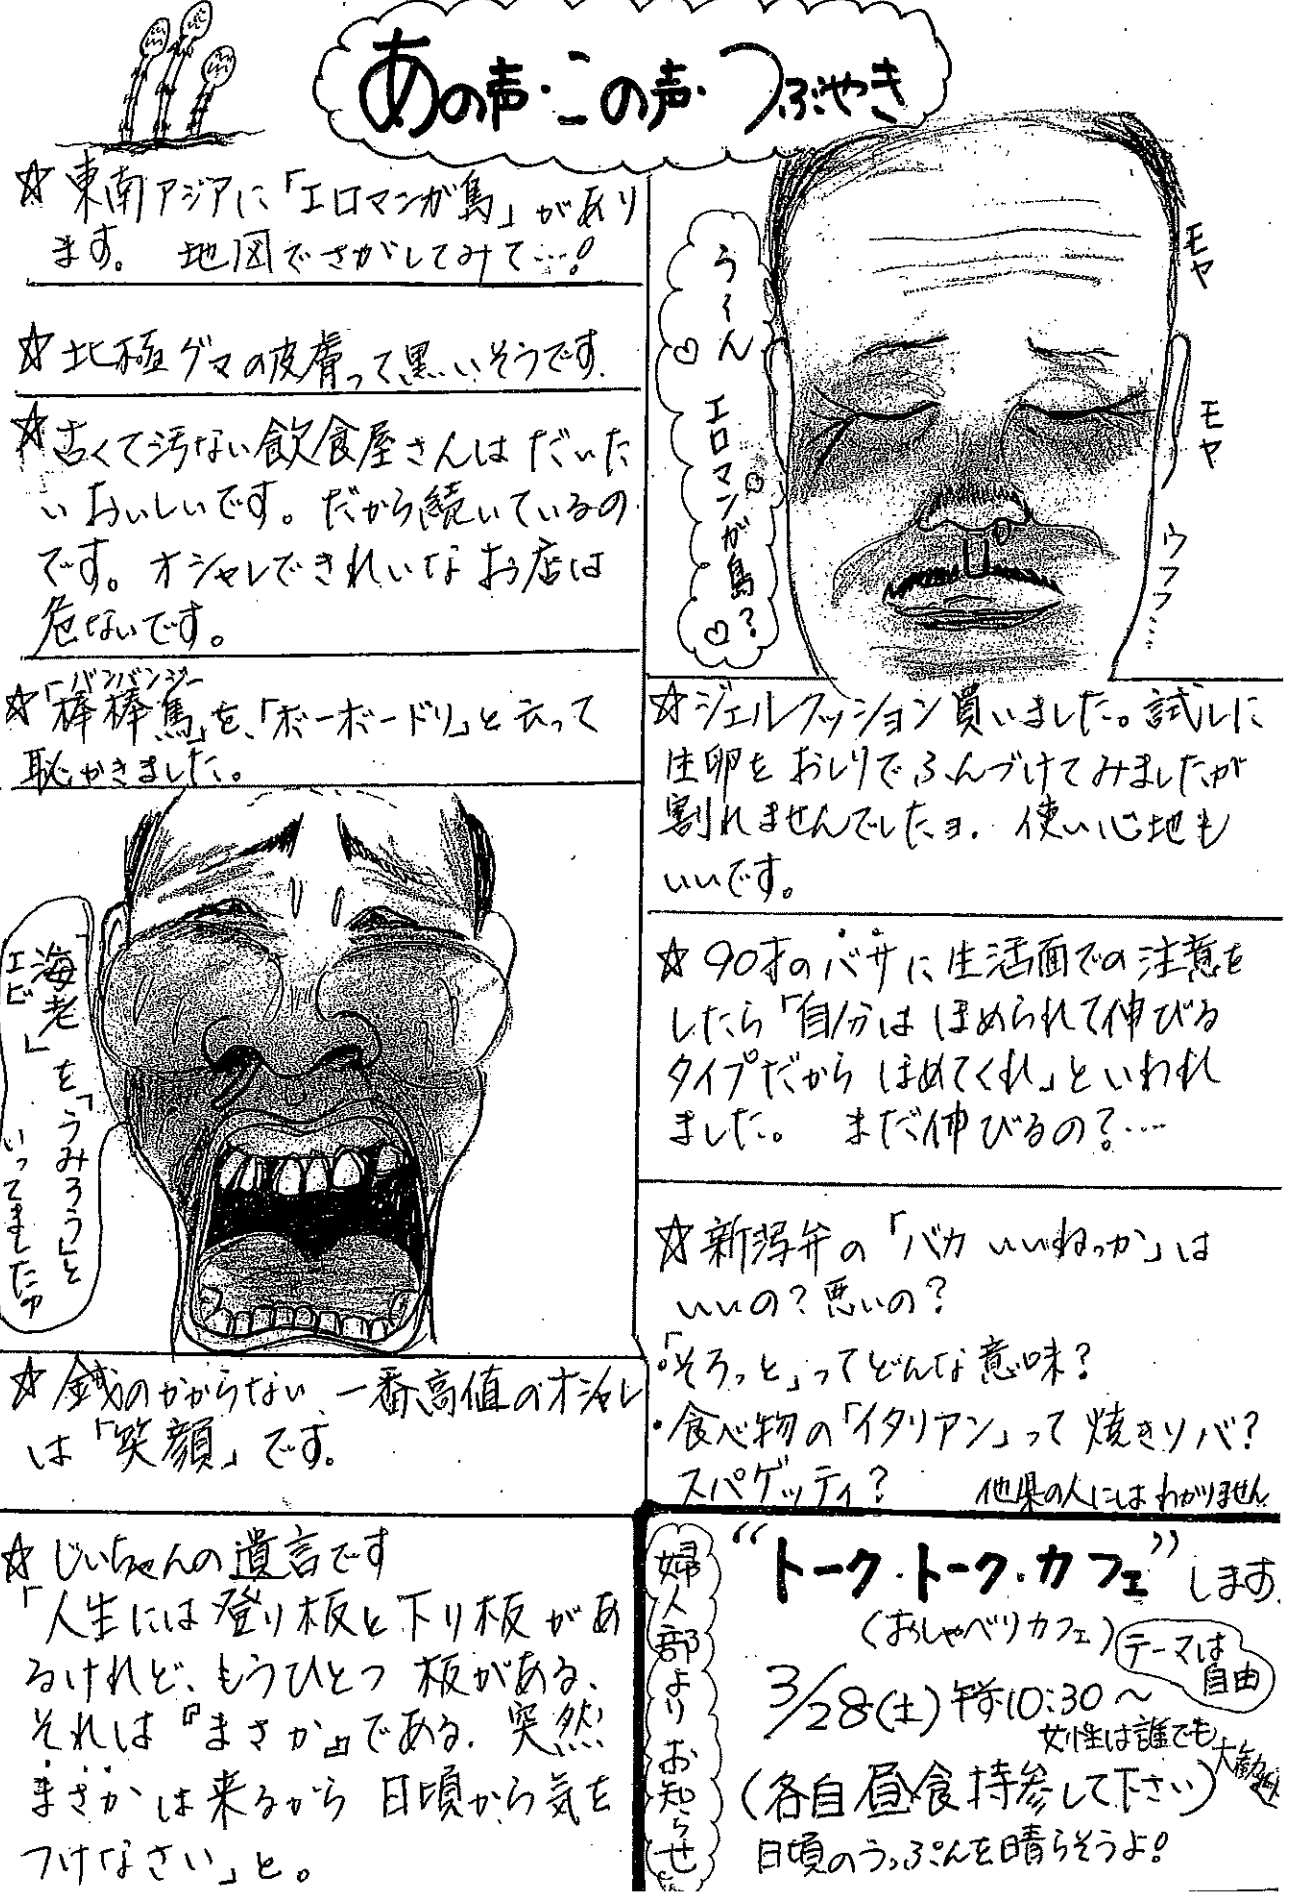 あの声・この声・つぶやき
☆東南アジアに「エロマンガ島」があり
ます。 地図でさがしてみて…!
☆北極グマの皮膚って黒いそうです.
☆古くて汚ない飲食屋さんは だいた
い おいしいです。だから続いているの
です。オシャレできれいな お店は
危ないです。
バンバンジー
☆「棒棒鳥」を、「ボーボードリ」と云って
恥かきました。
「海老」を「うみろう」と
エビ
いってましたァ
☆銭のかからない 一番高値のオシャレ
は「笑顔」です。
☆じいちゃんの遺言です
「人生には登り板と下り板があ
るけれど、もうひとつ 板がある、
それは『まさか』である. 突然
まさかは来るから 日頃から気を
つけなさい」と。
う~ん
エロマンガ島?
モヤ
モヤ
ウフフ…
☆ジェルクッション買いました。試しに
生卵をおしりでふんづけてみましたが
割れませんでしたヨ. 使い心地も
いいです。
☆90才のバサに生活面での注意を
したら「自分は ほめられて伸びる
タイプだから ほめてくれ」といわれ
ました。 まだ伸びるの?…
☆新潟弁の「バカ いいねっか」は
いいの?悪いの?
・「そろっと」ってどんな意味?
・食べ物の「イタリアン」って 焼きソバ?
スパゲッティ? 他県の人にはわかりません
婦人部よりお知らせ
“トーク・トーク・カフェ”します.
(おしゃべりカフェ)
テーマは
自由
3/28(土)午前10:30~
女性は誰でも大歓迎
(各自昼食持参して下さい)
日頃のうっぷんを晴らそうよ!